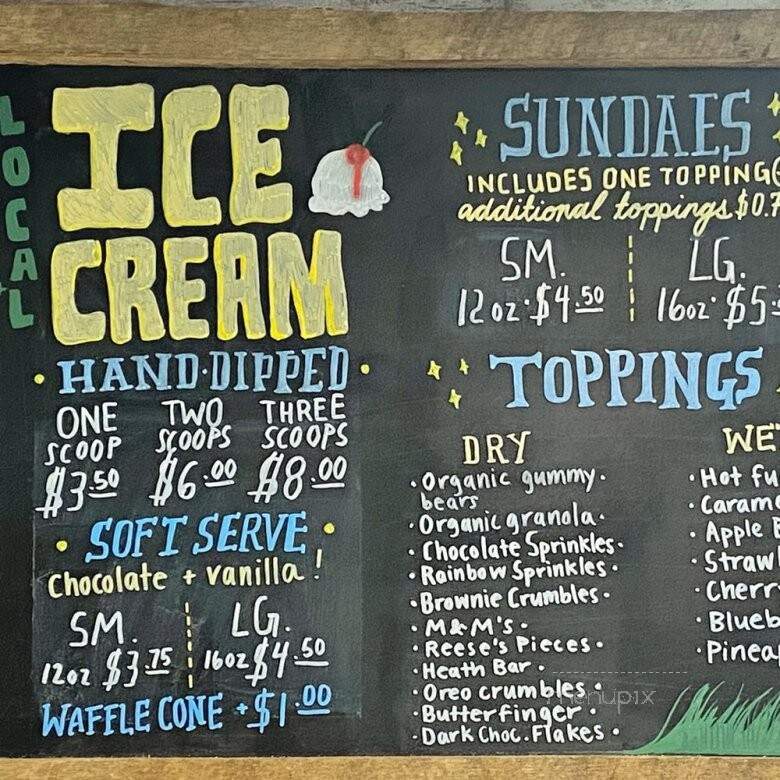 LOCAL
ICE
CREAM
HAND·DIPPED
ONE SCOOP $3.50
TWO SCOOPS $6.00
THREE SCOOPS $8.00
SOFT SERVE
Chocolate + vanilla!
SM. LG.
12oz $3.75 16oz $4.50
WAFFLE CONE + $1.00
SUNDAES
INCLUDES ONE TOPPING(
additional toppings $0.7
SM. LG.
12oz· $4.50 16oz· $5.
TOPPINGS
DRY
·Organic gummy·
bears
·Organic granola·
·Chocolate Sprinkles·
·Rainbow Sprinkles·
·Brownie Crumbles·
·M&M's·
·Reese's Pieces·
·Heath Bar·
·Oreo crumbles·
·Butterfinger·
·Dark Choc. Flakes·
WE
·Hot fu
·Caram
·Apple
·Straw
·Cherr
·Blueb
·Pinea
menupix